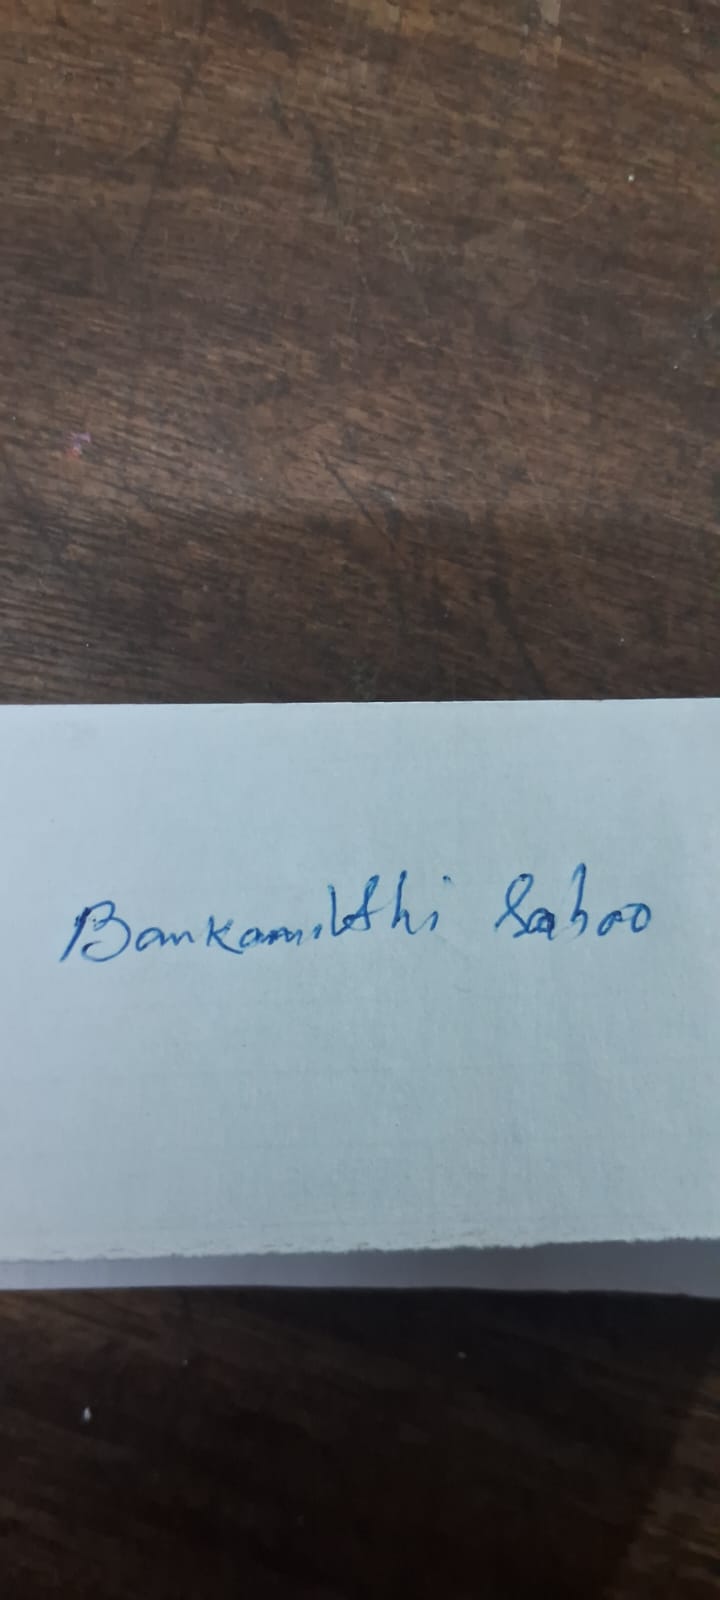 Bankanidhi Sahoo